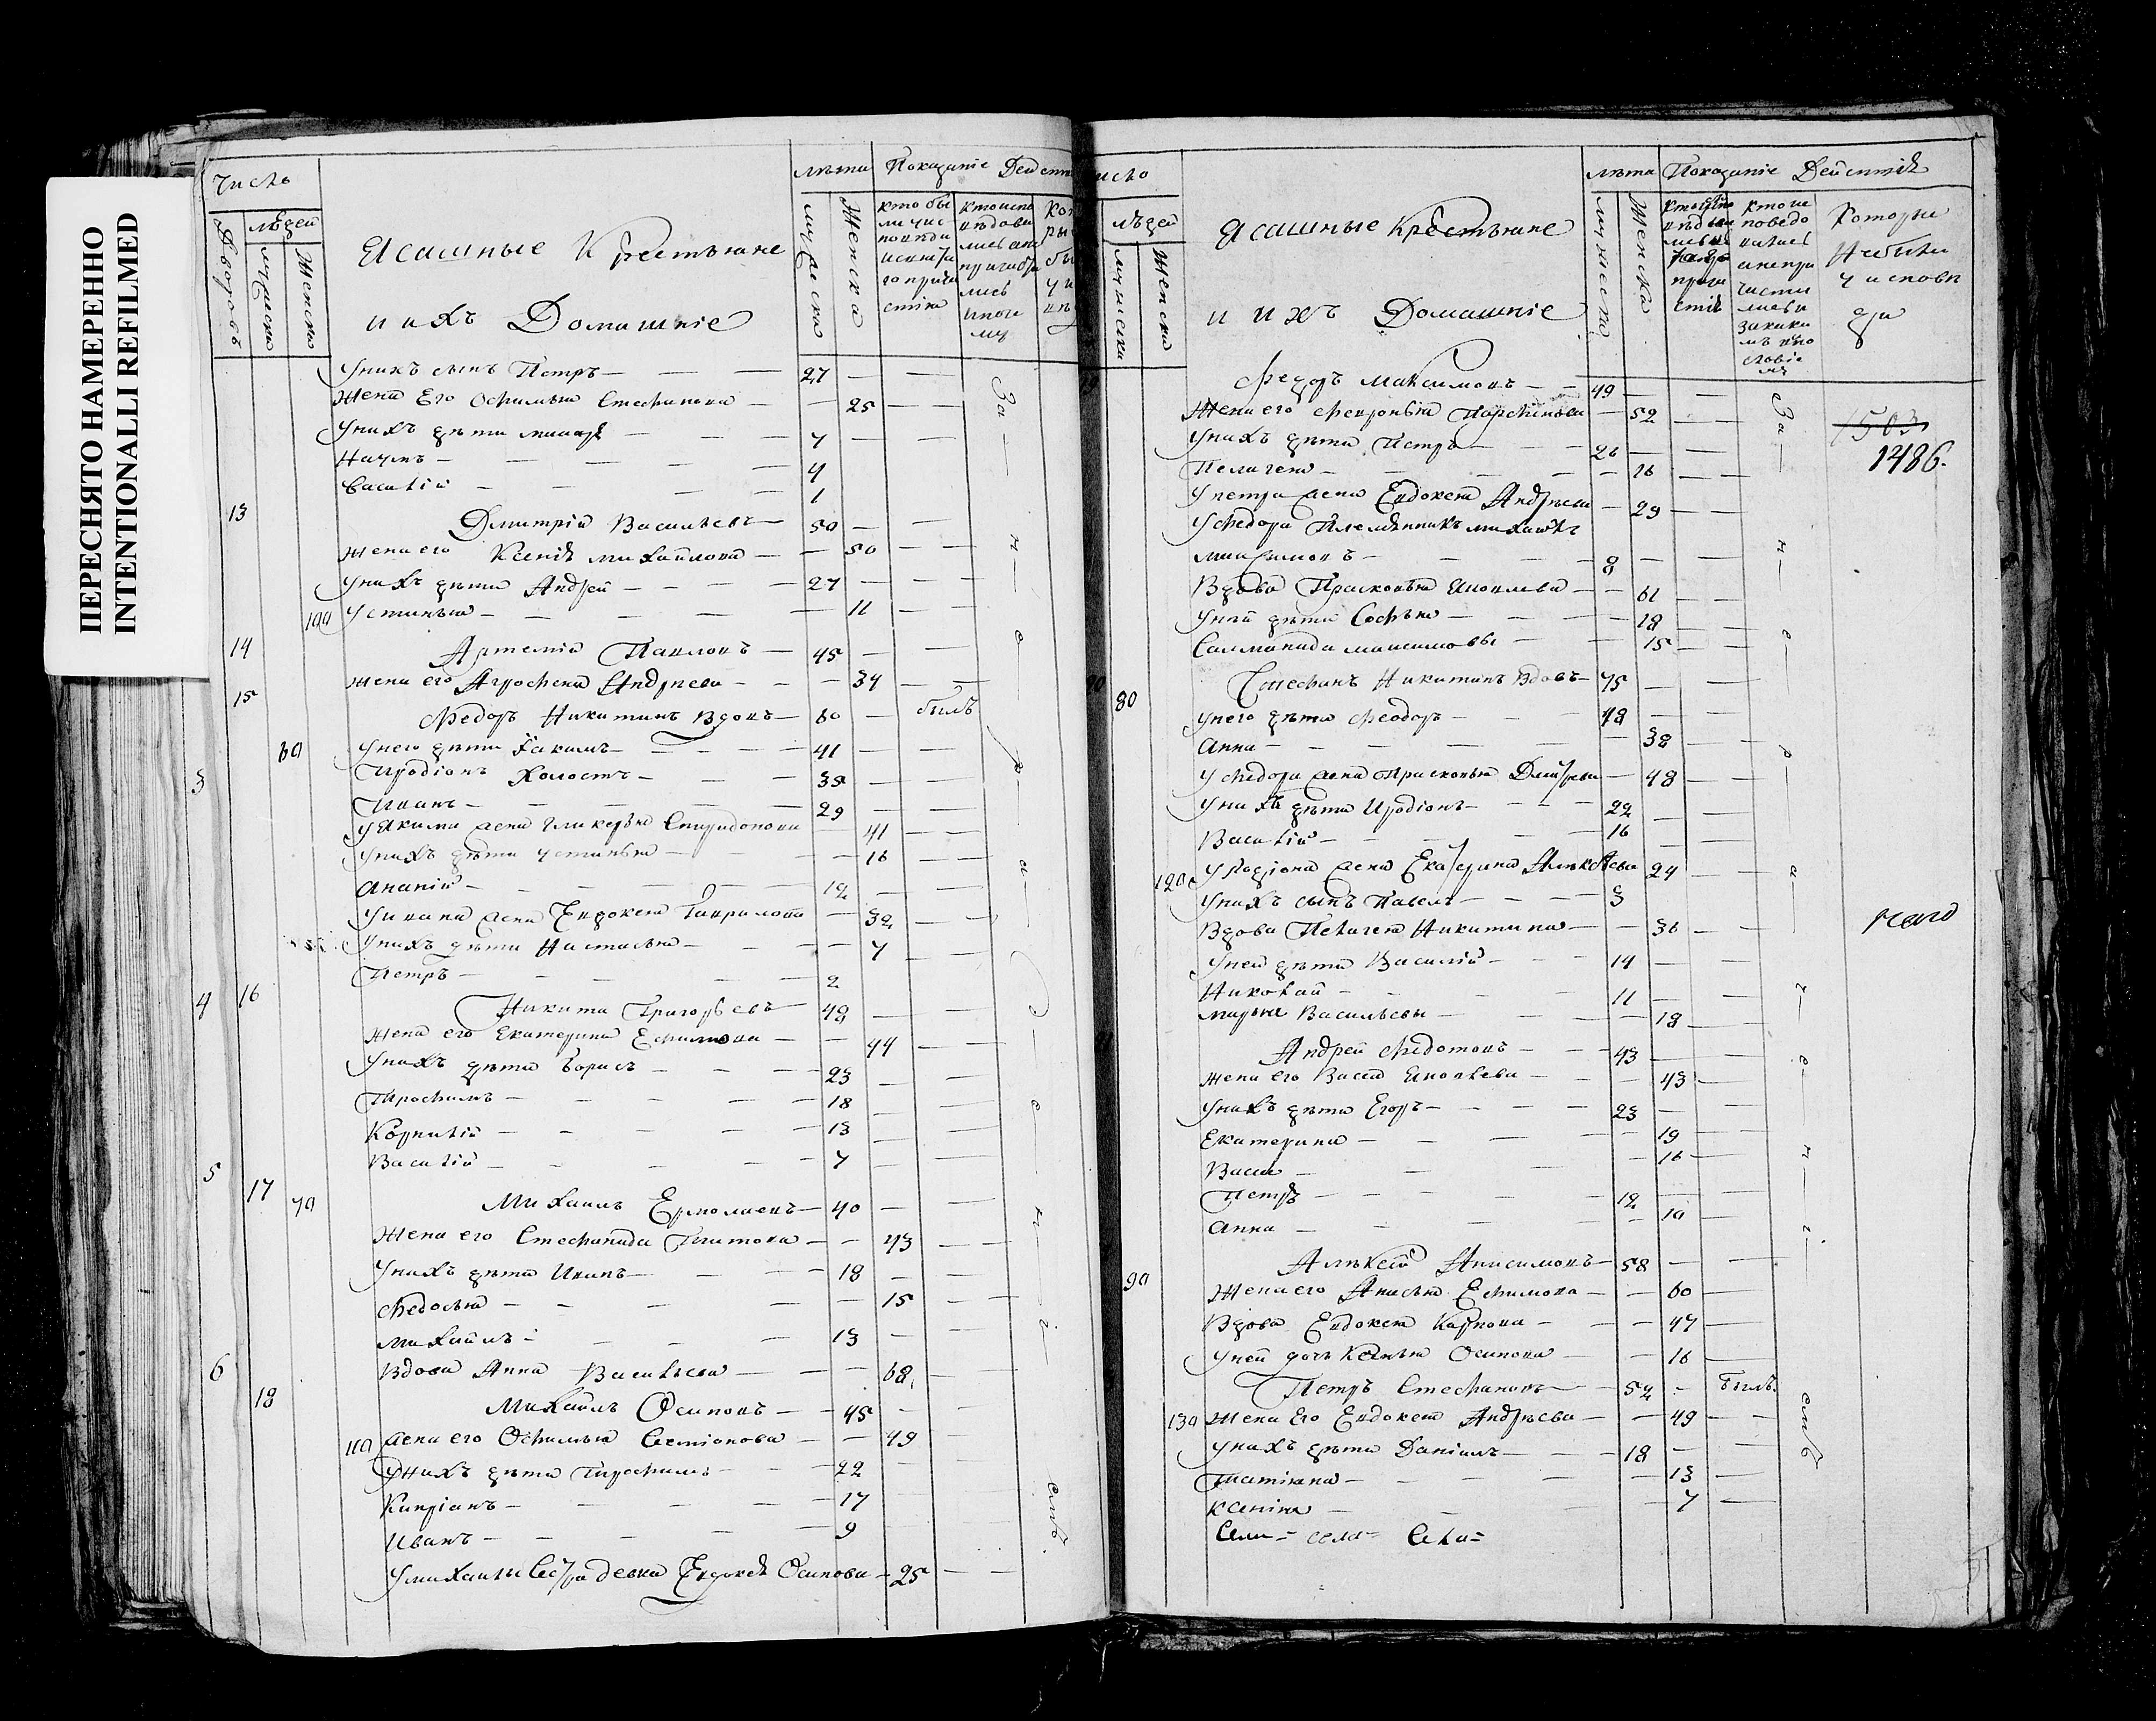 ПЕРЕСНЯТО НАМЕРЕННО
INTENTIONALLI REFILMED
число
людей
Дворовъ
мужеска
Женска
Ясашные Крестьяне
и ихъ Домашніе
лѣта
мужеска
Женска
Показаніе Дейст
кто бы
У нихъ сынъ Петръ 27
Жена Его Офимья Стефанова 25
У нихъ дѣти 7
Наумъ 4
Василій 1
13 Дмитрій Васильевъ 50
жена его Ксенія михайлова 50
У нихъ дѣти Андрей 27
100 Устинья 11
14 Артемій Павловъ 45
жена его Агрофена Андреева 34
15 Федоръ Никитинъ вдовъ 60 былъ
60 У него дѣти Іакимъ 41
Иродіонъ Холостъ 35
Иванъ 29
У Якима жена Гликерья Спиридонова 41
У нихъ дѣти устинья 16
Ананій 12
У ивана жена Евдокея Гаврилова 32
У нихъ дѣти Настасья 7
Петръ 2
4 16 Никита Григорьевъ 48
Жена его Екатерина Ефимова 44
У нихъ дѣти Борисъ 23
Трофимъ 18
Корнилій 13
Василій 7
5 17 70 Михаилъ Ермолаевъ 40
Жена его Стефанида Титова 43
У нихъ дѣти Иванъ 18
Федосья 15
михаилъ 13
6 Вдова Анна Васильева 68
18 Михаилъ Осиповъ 45
110 жена его Офимья Семіонова 49
У нихъ дѣти Трофимъ 22
Кипріанъ 17
Иванъ 9
У михаилы Сестра девка Евдокея Осипова 25
число
людей
мужеска
Женска
Ясашные Крестьяне
и ихъ Домашніе
лѣта
мужеска
Женска
Показаніе Действія
Которые
Небыли
у исповѣ
ди
Федоръ Максимовъ 49
Жена его Февронья Парфенова 52
У нихъ дѣти Петръ 26
Пелагея 16
У петра жена Евдокея Андреева 29
У Федора Племянникъ михаилъ
максимовъ 8
Вдова Прасковья Яковлева 61
У ней дѣти Софья 18
Саломанида максимовы 15
80 Стефанъ Никитинъ вдовъ 75
У него дѣти Феодоръ 48
Анна 38
У Федора жена Прасковья Дмитрева 48
У нихъ дѣти Иродіонъ 22
Василій 16
120 У Родіона жена Екатерина Алексѣева 24
У нихъ сынъ Павелъ 3
Вдова Пелагея Никитина 36
У ней дѣти Василій 14
Николай 11
марья Васильевы 18
Андрей Федотовъ 43
Жена его Васса Яковлева 43
У нихъ дѣти Егоръ 23
Екатерина 19
Васса 16
Петръ 12
Анна 10
90 Алексей Анисимовъ 58
Жена его Анисья Ефимова 60
Вдова Евдокея Карпова 47
У ней дочь Ксенья Осипова 16
Петръ Стефановъ 52 былъ
130 Жена Его Евдокея Андреева 49
У нихъ дѣти Даніилъ 18
Татіяна 13
Ксенія 7
Села села Села
1503
1486.